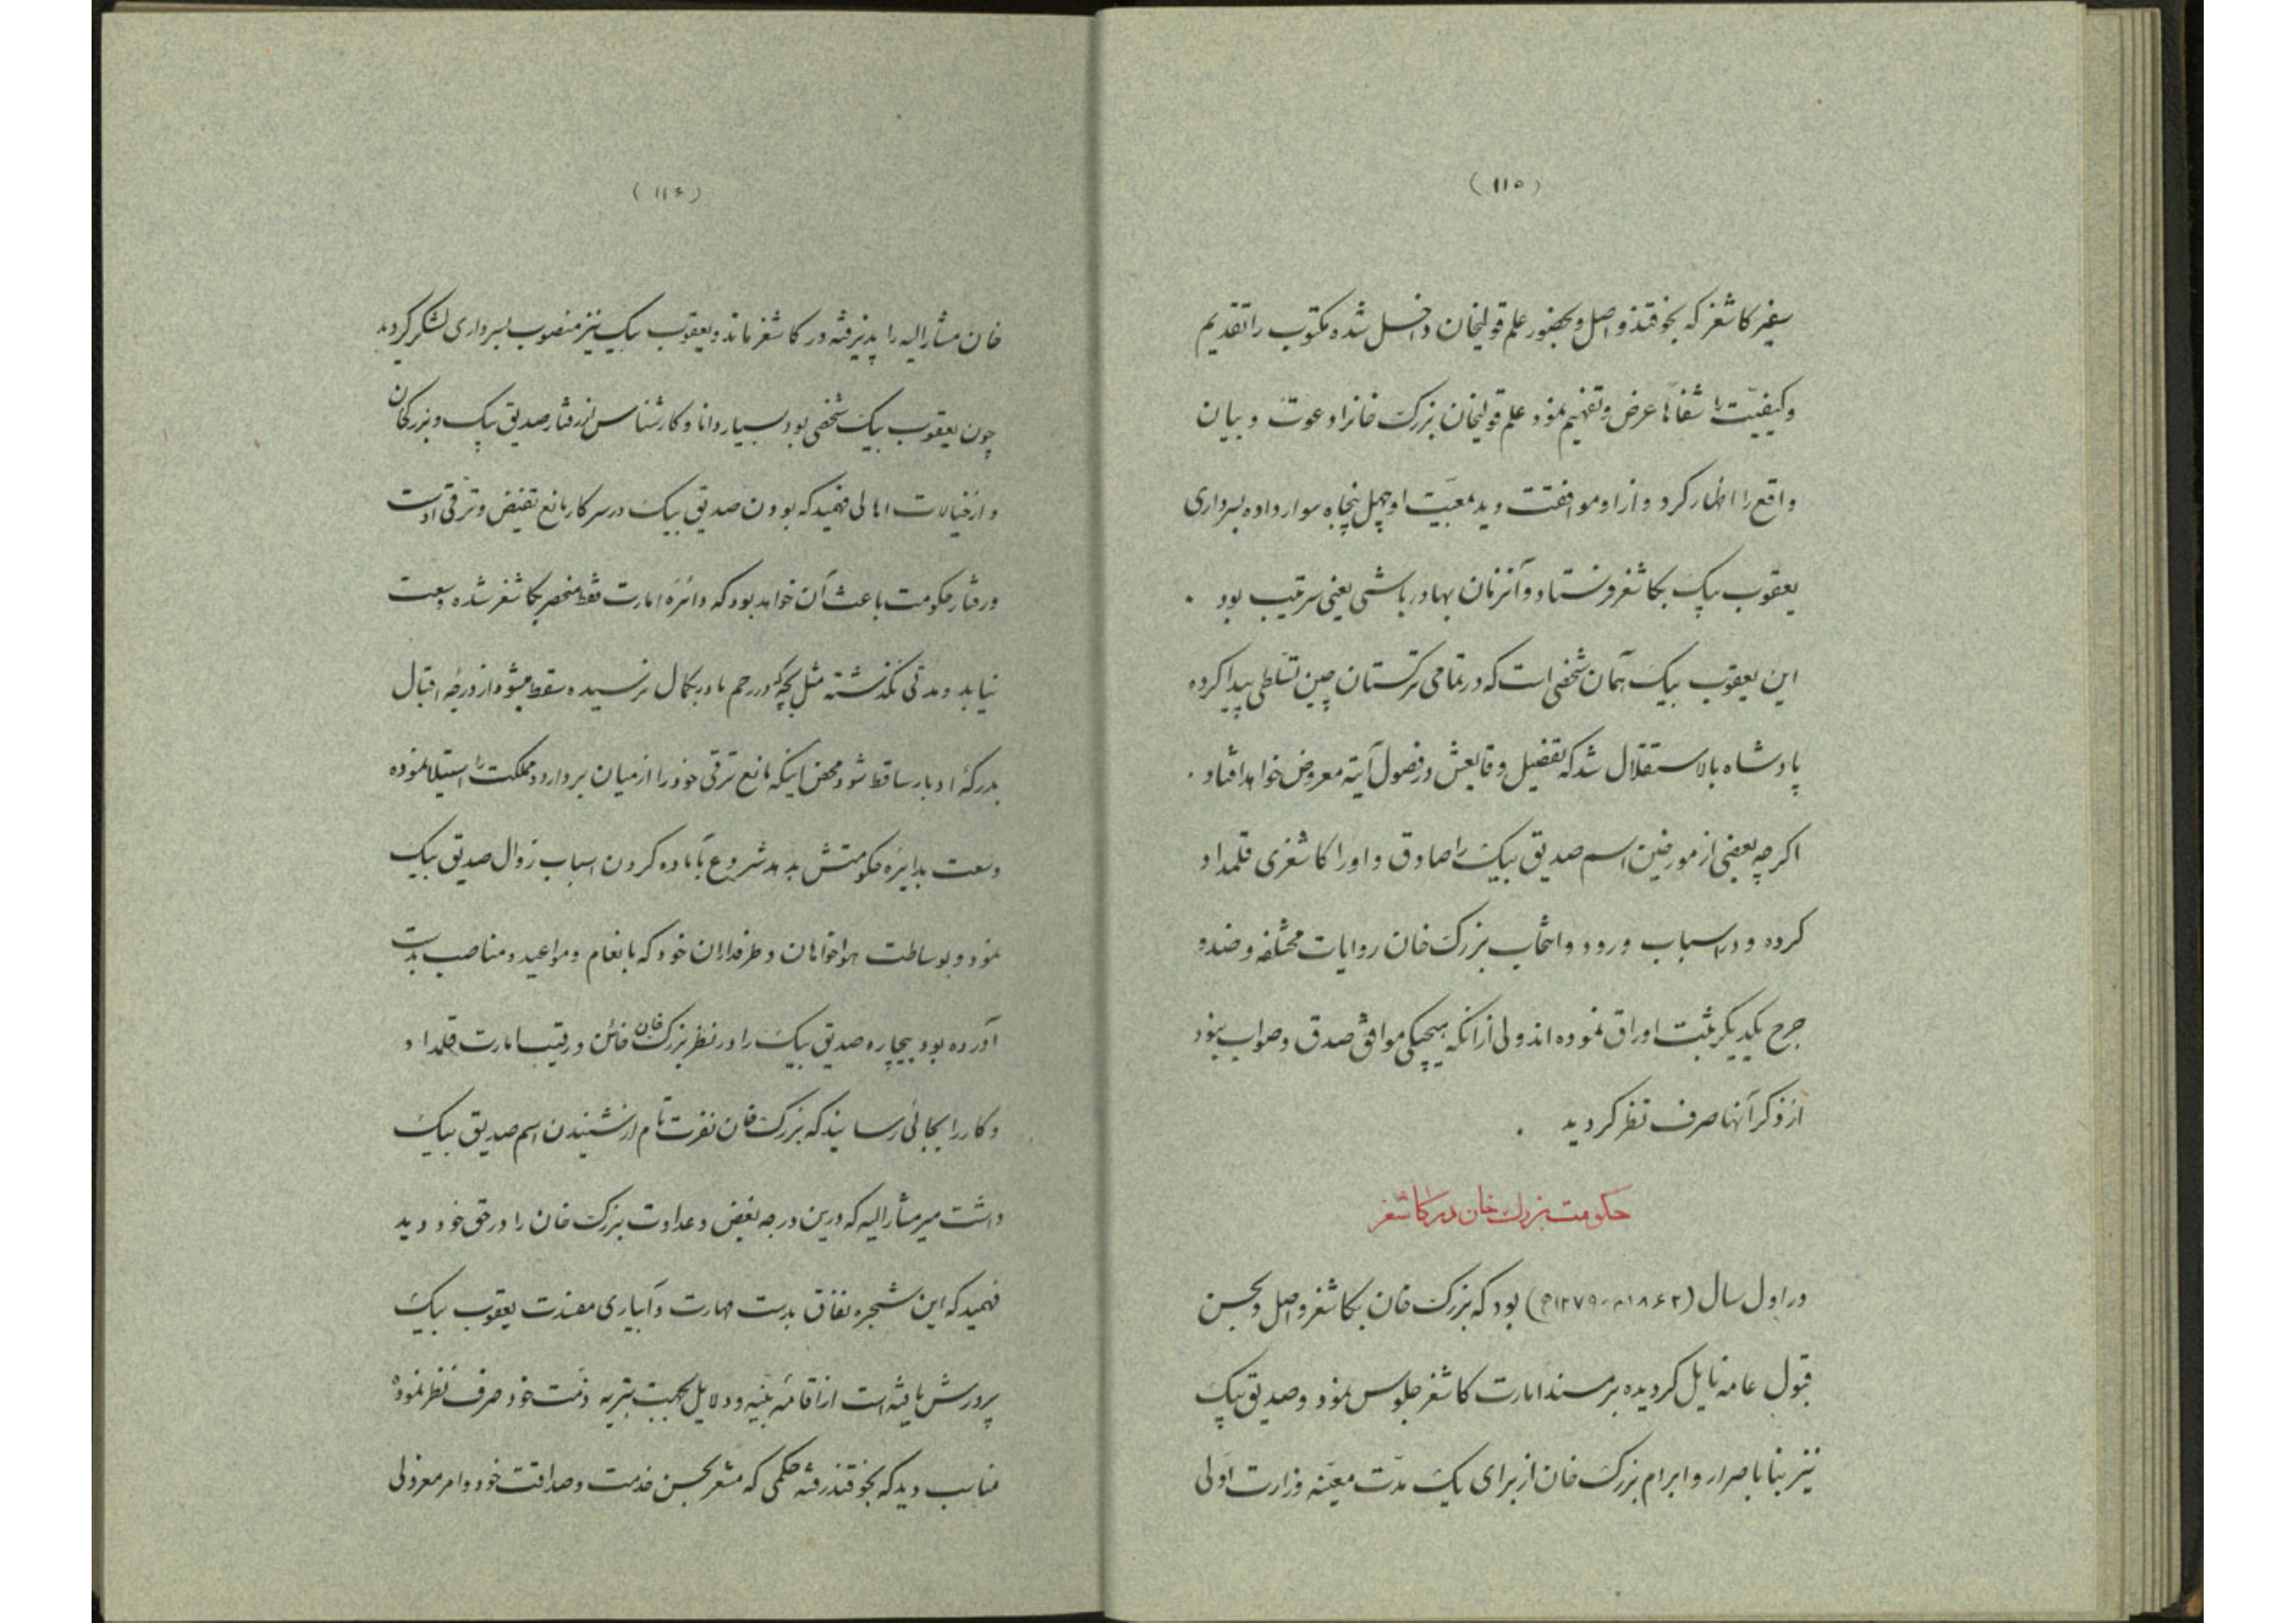 (۱۱۵)
سفیر کاشغر که بخوقند واصل و بحضور علم قولیخان داخل شده مکتوب را تقدیم
و کیفیّت را شفاهاً عرض و تفهیم نمود علم قولیخان بزرک خانرا دعوت و بیان
واقع را اظهار کرد و از او موافقت دید بمعیّت او چهل پنجاه سوار داده بسرداری
یعقوب بیک بکاشغر فرستاد و آنزمان بهادر باشی یعنی سرتیب بود .
این یعقوب بیک همان شخصی است که در تمامی ترکستان چین تسلطی پیدا کرده
پادشاه بالاستقلال شد که تفضیل وقایعش در فصول آیته معروض خواهد افتاد .
اکرچه بعضی از مورخین اسم صدیق بیک را صادق و او را کاشغری قلمداد
کرده و در اسباب ورود و انتخاب بزرک خان روایات مختلفه و ضد و
جرح یکدیکر بثبت اوراق نموده اند ولی از انکه هیچیکی موافق صدق و صواب نبود
از ذکر آنها صرف نظر کردید .
حکومت بزرک خان در کاشغر
در اول سال (۱۸۶۲م-۱۲۷۹ه) بود که بزرک خان بکاشغر واصل و بحسن
قبول عامه نایل کردیده بر مسند امارت کاشغر جلوس نمود و صدیق بیک
نیز بنا باصرار و ابرام بزرک خان از برای یک مدّت معیّنه وزارت اولی
(۱۱۶)
خان مشارالیه را پذیرفته در کاشغر ماند و یعقوب بیک نیز منصوب بسرداری لشکر کردید
چون یعقوب بیک شخصی بود بسیار دانا و کارشناس از رفتار صدیق بیک و بزرکان
و از خیالات اهالی فهمید که بودن صدیق بیک در سر کار مانع تفیض و ترقی اوست
و رفتار حکومت باعث آن خواهد بود که دائرهٔ امارت فقط منحصر بکاشغر شده وسعت
نیابد و مدتی نکذشته مثل بچهٔ که در رحم مادر بکمال نرسیده سقط میشود از درجهٔ اقبال
بدرکهٔ ادبار ساقط شود محض اینکه مانع ترقی خود را از میان بردارد و مملکت را استیلا نموده
وسعت بدایرهٔ حکومتش بدهد شروع بآماده کردن اسباب زوال صدیق بیک
نمود و بوساطت هواخواهان و طرفداران خود که بانعام و مواعید و مناصب بدست
آورده بود بیچاره صدیق بیک را در نظر بزرک خان خائن و رقیب امارت قلمداد
و کار را بجائی رسانید که بزرک خان نفرت تام از شنیدن اسم صدیق بیک
داشت میر مشارالیه که درین درجه بغض و عداوت بزرک خان را در حق خود دید
فهمید که این شجره نفاق بدست مهارت و آبیاری مفسدت یعقوب بیک
پرورش یافته است از اقامهٔ بینه و دلایل بجهت تبریه ذمت خود صرف نظر نموده
مناسب دید که بخوقند رفته حکمی که مشعر بحسن خدمت و صداقت خود و امر معزولی